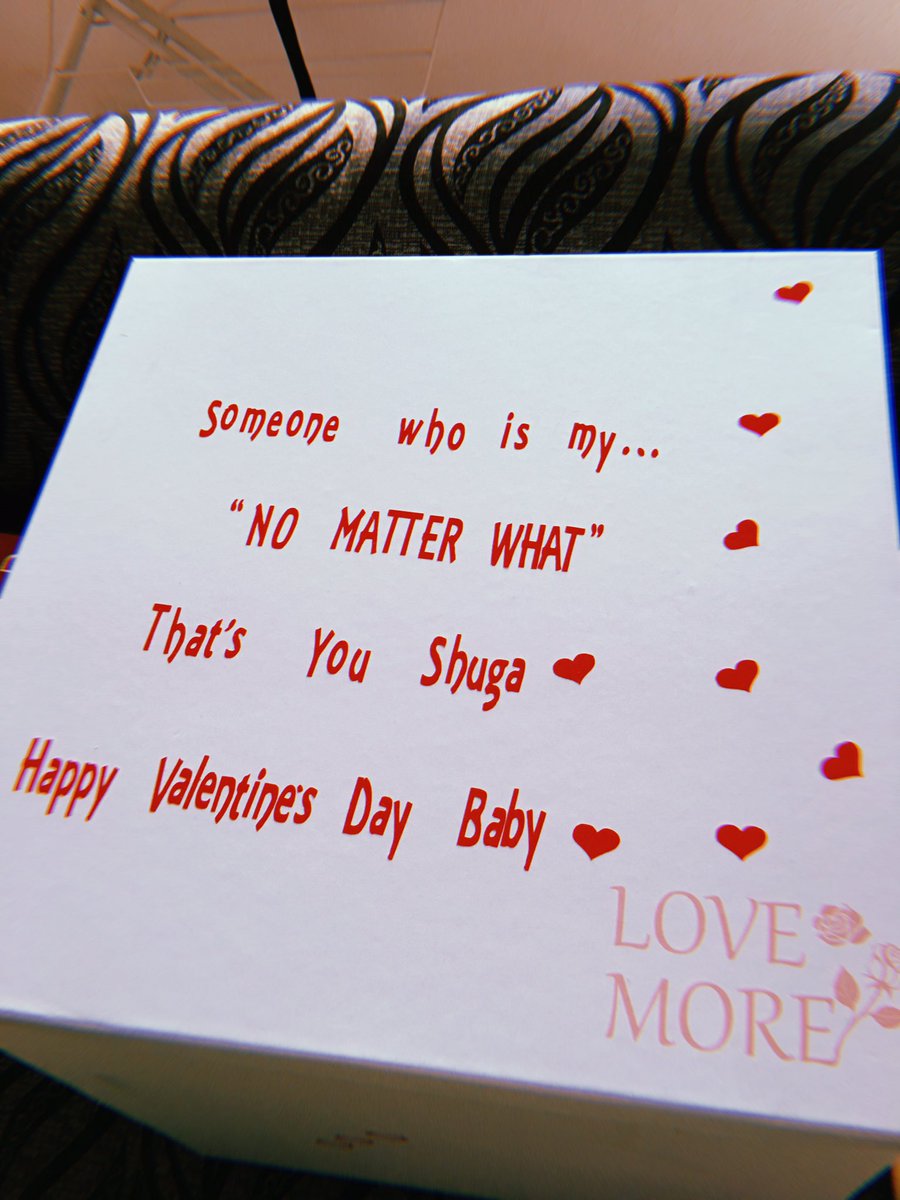 Someone who is my...
"NO MATTER WHAT"
That's You Shuga
Happy Valentine's Day Baby
LOVE
MORE